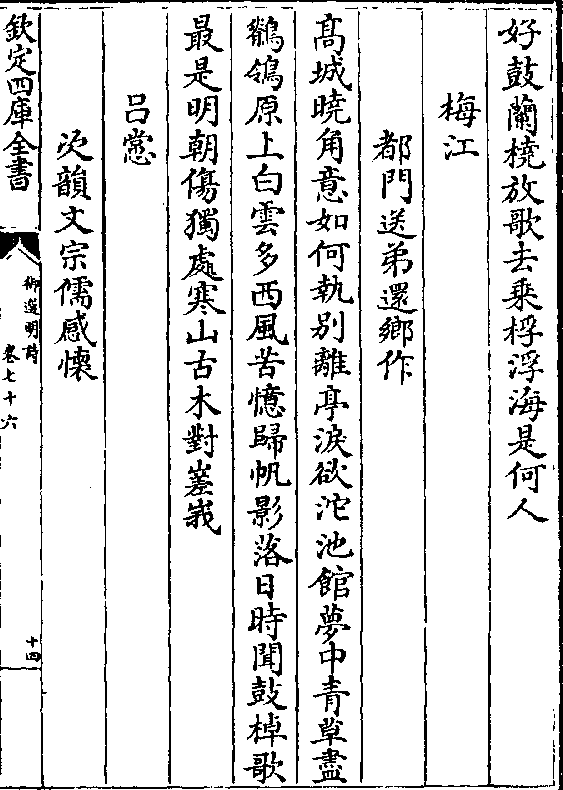 好鼓蘭橈放歌去乗桴浮海是何人
梅江
都門送弟還鄉作
髙城曉角意如何執别離亭淚欲沱池館夢中青草盡
鶺鴒原上白雲多西風苦憶歸帆影落日時聞鼓棹歌
最是明朝傷獨處寒山古木對嵳峩
吕㦂
次韻文宗儒感懷
欽定四庫全書
御選明詩
卷七十六
十四